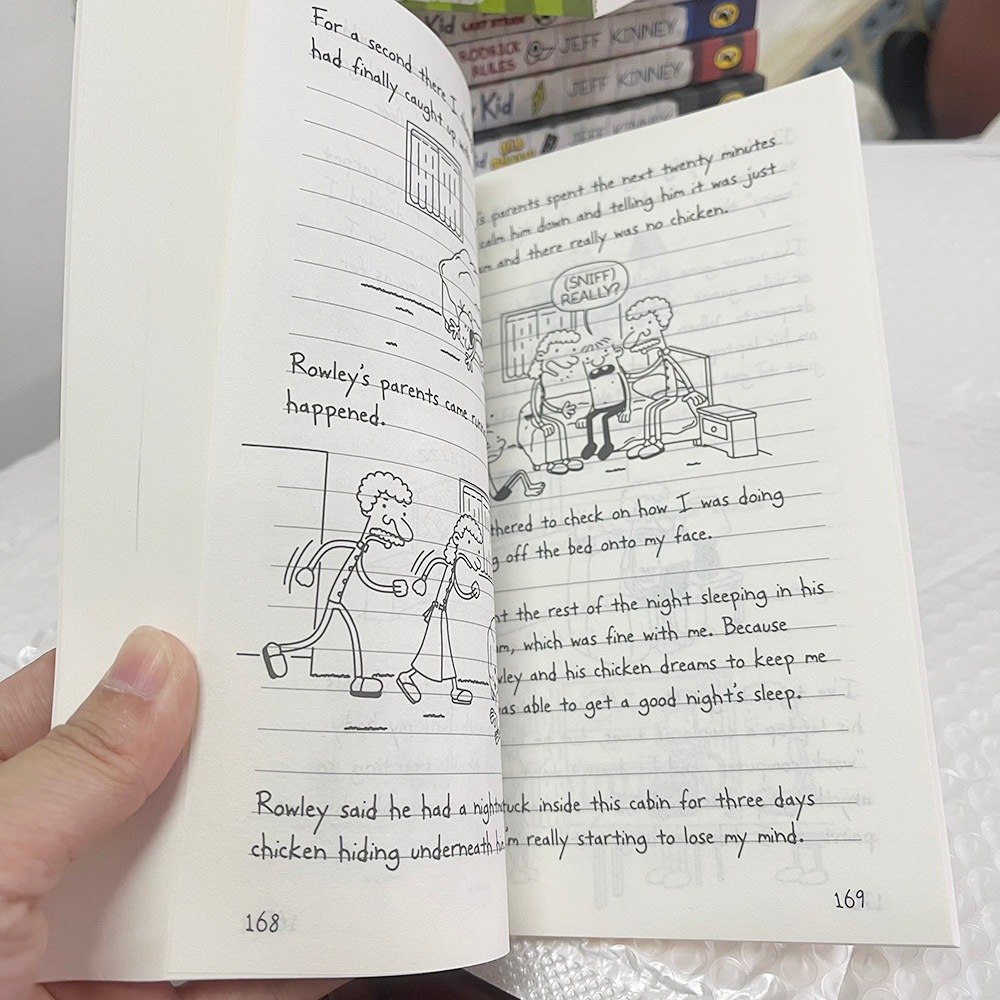 Kid LAST STRAW
RODRICK RULES JEFF KINNEY
Kid JEFF KINNEY
JEFF KINNEY
For a second there I
had finally caught up
Rowley's parents came
happened.
Rowley said he had a
chicken hiding underneath
168
parents spent the next twenty minutes
calm him down and telling him it was just
and there really was no chicken.
(SNIFF)
REALLY?
to check on how I was doing
off the bed onto my face.
the rest of the night sleeping in his
which was fine with me. Because
and his chicken dreams to keep me
able to get a good night's sleep.
inside this cabin for three days
I'm really starting to lose my mind.
169